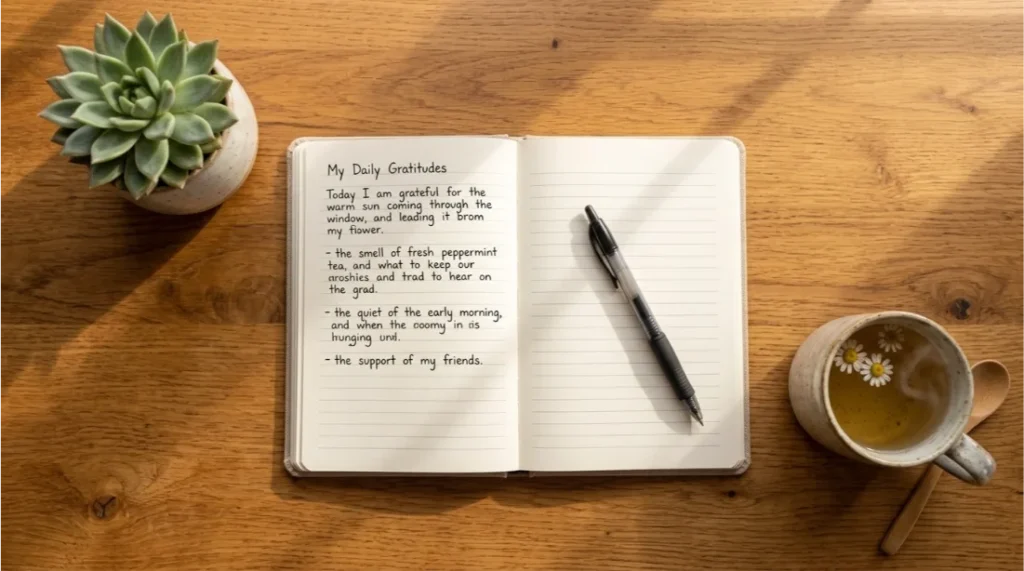 My Daily Gratitudes
Today I am grateful for the
warm sun coming through the
window, and leading it brom
my flower.
- the smell of fresh peppermint
tea, and what to keep our
aroshies and trad to hear on
the grad.
- the quiet of the early morning,
and when the in is
hunging
- the support of my friends.